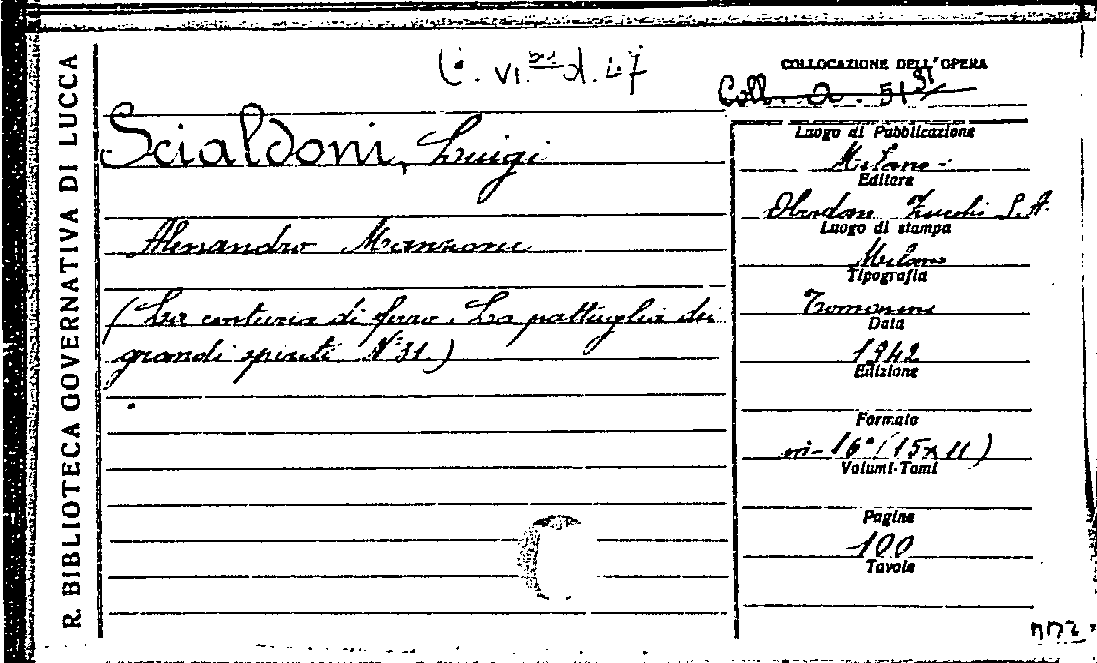 R. BIBLIOTECA GOVERNATIVA DI LUCCA
C. VI. bis d. 47
COLLOCAZIONE DELL'OPERA
Coll. a. 51 31
Scialdoni, Luigi
Alessandro Manzoni
(La centuria di ferro. La pattuglia dei
grandi spiriti N° 31.)
Luogo di Pubblicazione
Milano
Editore
Zucchi S.A.
Luogo di stampa
Milano
Tipografia
Data
1942
Edizione
Formato
in-16° (15x11)
Volumi-Tomi
Pagine
100
Tavole